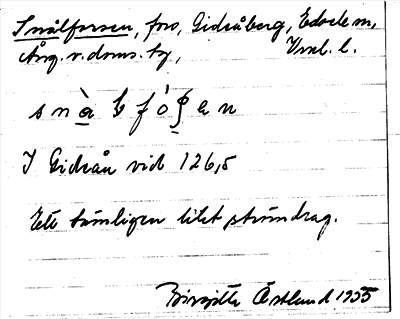 Snålforsen, fors, Gideåberg, Edsele sn,
Ång. v. doms. tg, Vbnl. l.
s n å̀ l f ó ʂ e n
I Gideån vid 126,5
Ett tämligen litet strömdrag.
Birgitta Östlund 1955